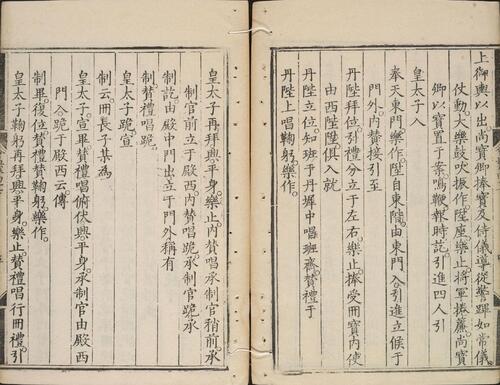 上御輿以出尚寶卿捧寶及侍儀導從警蹕如常儀
仗動大樂鼓吹振作陞座樂止將軍捲簾尚寶
卿以寶置于案鳴鞭報時訖引進四人引
皇太子入
奉天東門樂作陞自東陛由東門入引進立候于
門外内贊接引至
丹陛拜位引禮分立于左右樂止捧受冊寶内使
由西陛陞俱入就
丹陛立位知班于丹墀中唱班齊贊禮于
丹陛上唱鞠躬樂作
皇太子再拜興平身樂止内贊唱承制官稍前承
制官前立于殿西内贊唱跪承制官跪承
制訖由殿中門出立于門外稱有
制贊禮唱跪
皇太子跪宣
制云冊長子某為
皇太子宣畢贊禮唱俯伏興平身承制官由殿西
門入跪于殿西云傳
制畢復位贊禮贊鞠躬樂作
皇太子鞠躬再拜興平身樂止贊禮唱行冊禮引